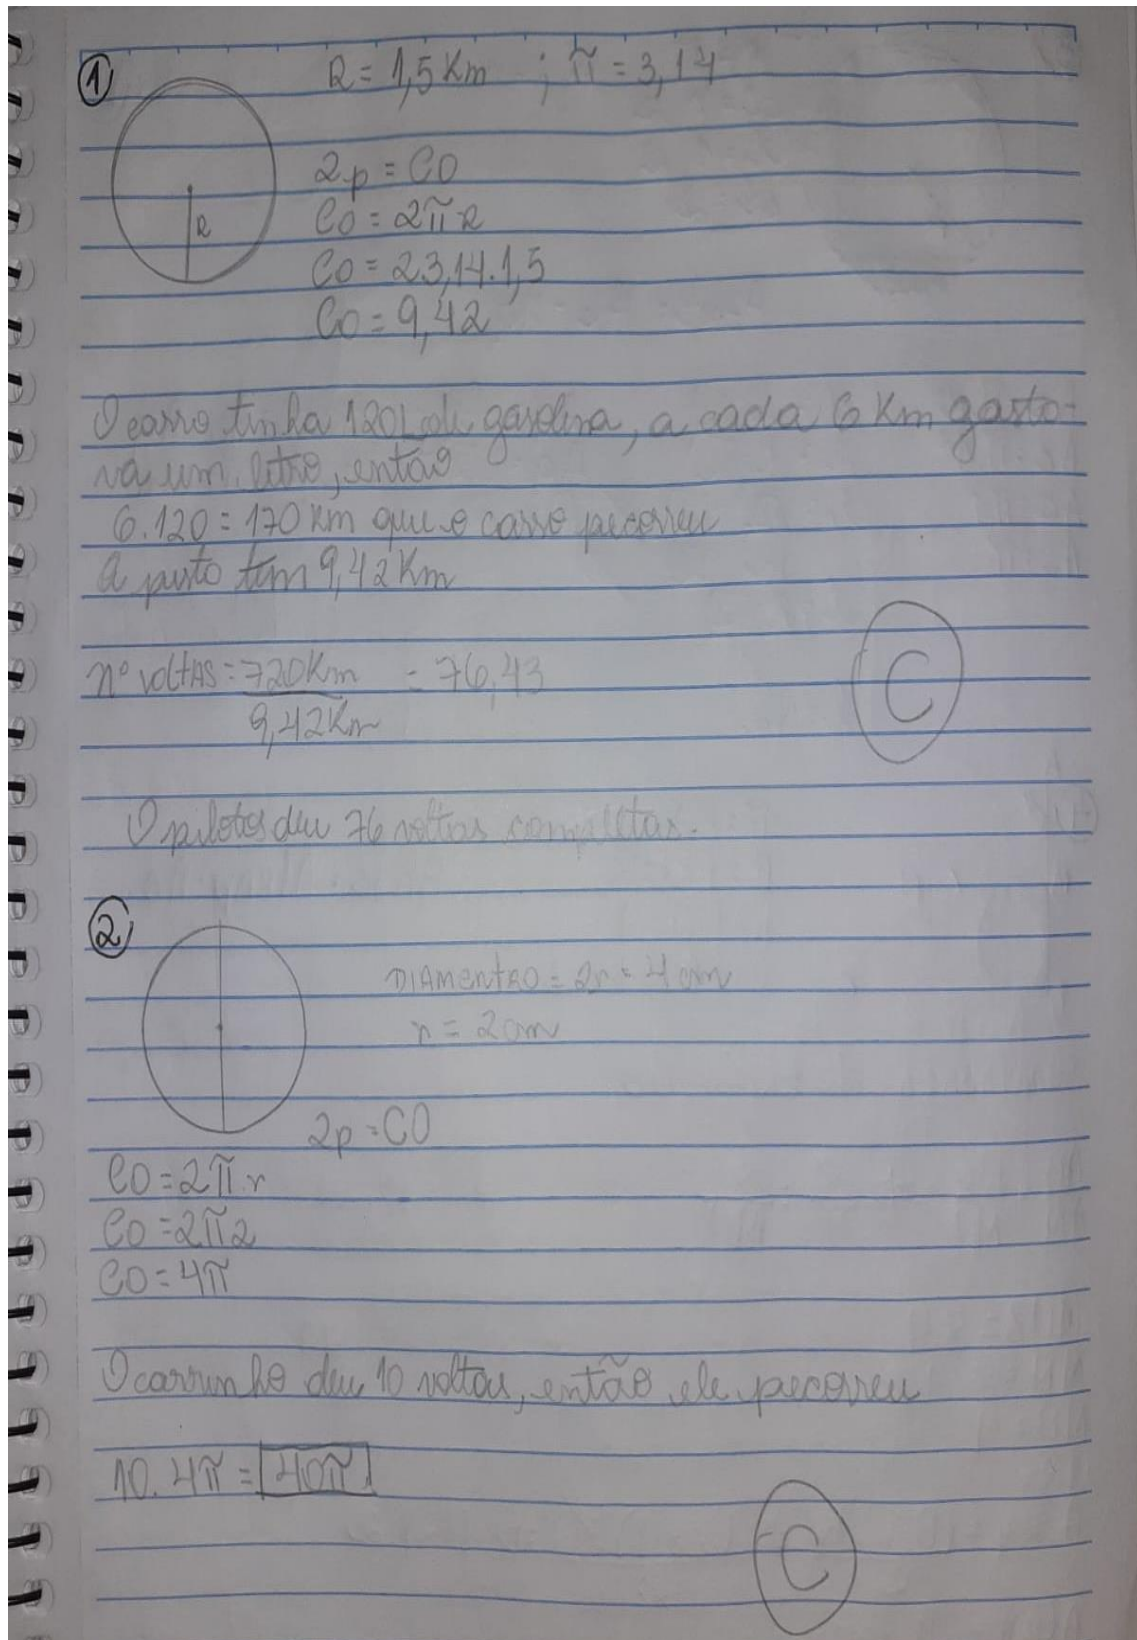 1
R = 1,5 Km ; π = 3,14
R
2p = CO
CO = 2π R
CO = 2 3,14 . 1,5
CO = 9,42
O carro tinha 120L de gasolina, a cada 6 Km gasta-
va um litro, então
6.120 = 170 km que o carro pecorreu
A pista tem 9,42 Km
nº voltas = 720 Km = 76,43
9,42 Km
C
O piloto deu 76 voltas completas.
2
Diamentro = 2r = 4 cm
r = 2 cm
2p = CO
CO = 2π.r
CO = 2π2
CO = 4π
O carrinho deu 10 voltas, então ele pecorreu
10. 4π = 40π
C